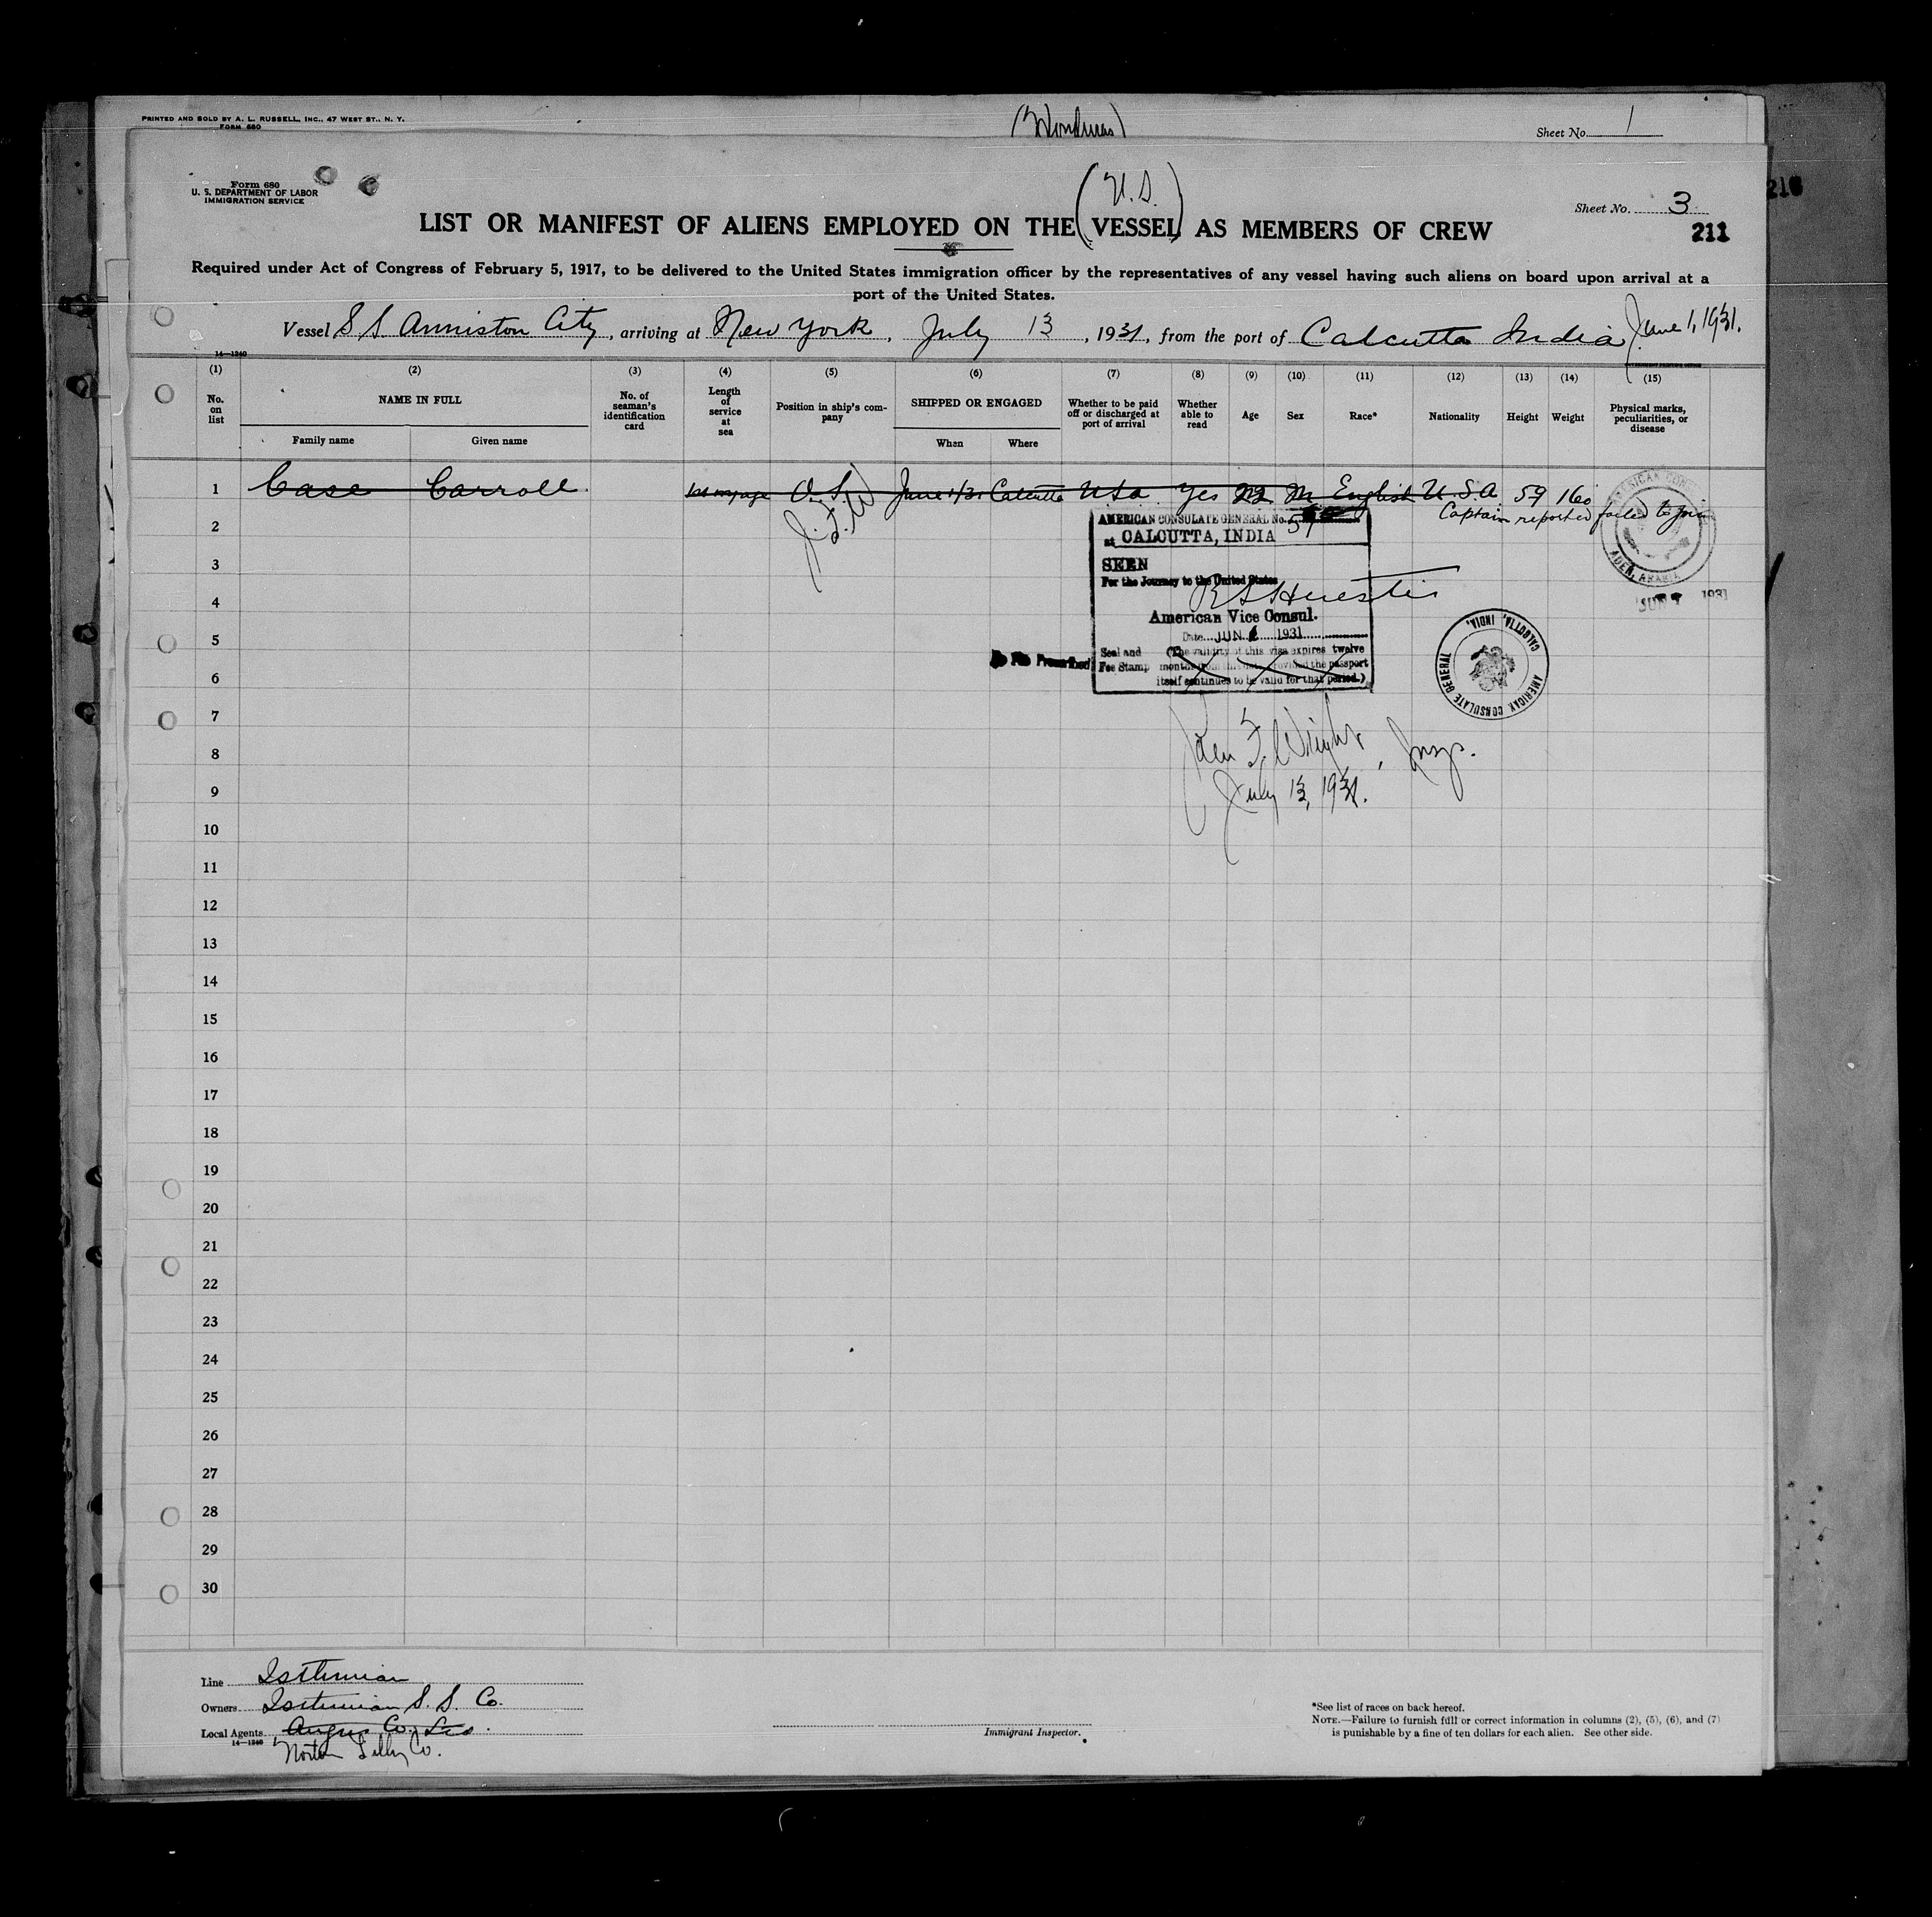 PRINTED AND SOLD BY A. L. RUSSELL, INC., 47 WEST ST., N. Y.
FORM 680
(Honduras)
Sheet No. 1
Form 680
U. S. DEPARTMENT OF LABOR
IMMIGRATION SERVICE
(U. S.)
Sheet No. 3
LIST OR MANIFEST OF ALIENS EMPLOYED ON THE VESSEL AS MEMBERS OF CREW
211
216
Required under Act of Congress of February 5, 1917, to be delivered to the United States immigration officer by the representatives of any vessel having such aliens on board upon arrival at a
port of the United States.
Vessel S S Anniston City, arriving at New York, July 13, 1931, from the port of Calcutta India June 1, 1931.
14—1240
(1) (2) (3) (4) (5) (6) (7) (8) (9) (10) (11) (12) (13) (14) (15)
No. on list
NAME IN FULL
Family name
Given name
No. of seaman's identification card
Length of service at sea
Position in ship's company
SHIPPED OR ENGAGED
When
Where
Whether to be paid off or discharged at port of arrival
Whether able to read
Age
Sex
Race*
Nationality
Height
Weight
Physical marks, peculiarities, or disease
1 Case Carroll 1st voyage O.S. June 1/31 Calcutta USA Yes 22 M English U.S.A. 59 160
Captain reported failed to join
J.F.W
2
3
4
5
6
7
8
9
10
11
12
13
14
15
16
17
18
19
20
21
22
23
24
25
26
27
28
29
30
AMERICAN CONSULATE GENERAL No. 59
at CALCUTTA, INDIA
SEEN
For the Journey to the United States
R S Huestis
American Vice Consul.
Date JUN 1 1931
No Fee Prescribed
Seal and Fee Stamp
(The validity of this visa expires twelve
months from this date provided the passport
itself continues to be valid for that period.)
AMERICAN CONSULATE GENERAL
CALCUTTA, INDIA.
AMERICAN CONSULATE
ADEN, ARABIA
JUN 1931
John F. Wright, Insp.
July 13, 1931.
Line Isthmian
Owners Isthmian S. S. Co.
Local Agents Angus Co. Ltd.
14—1240
Norton Lilly Co.
Immigrant Inspector.
*See list of races on back hereof.
NOTE.—Failure to furnish full or correct information in columns (2), (5), (6), and (7)
is punishable by a fine of ten dollars for each alien. See other side.